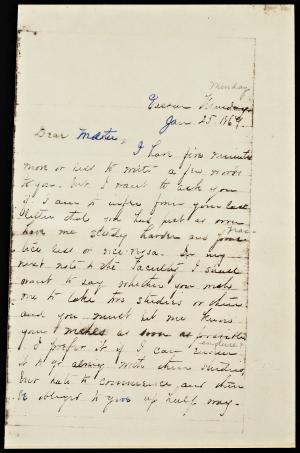 Monday
Jan. 25. 1869.
Dear Master,
I have five minutes
more or less to write a few words
to you. but I want to ask you
if I am to infer from your last
letter that you had just as soon
have me study harder and prac-
tice less or vice-versa. In my
next note to the Faculty I shall
want to say whether you wish
me to take two studies or three
and you must let me know
your wishes as soon as possible.
I prefer it if I can endure
it to go along with three studies,
but hate to commence, and then
be obliged to give up half way.